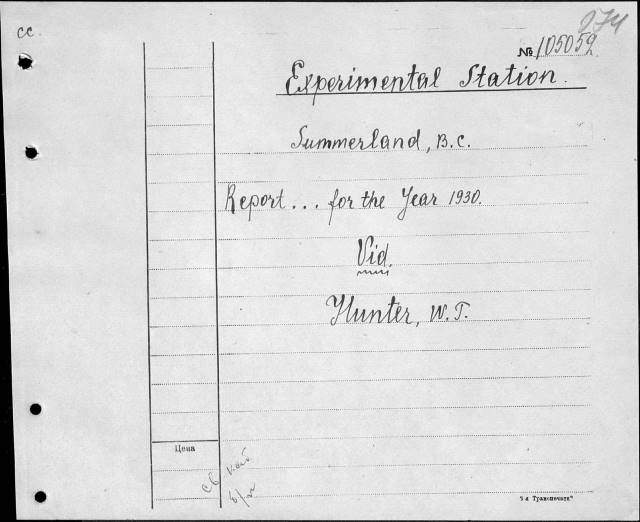 cc.
№ 105052
Experimental Station.
Summerland, B.C.
Report... for the Year 1930.
Vid.
Hunter, W.T.
Цена
"5 я Транспечать"